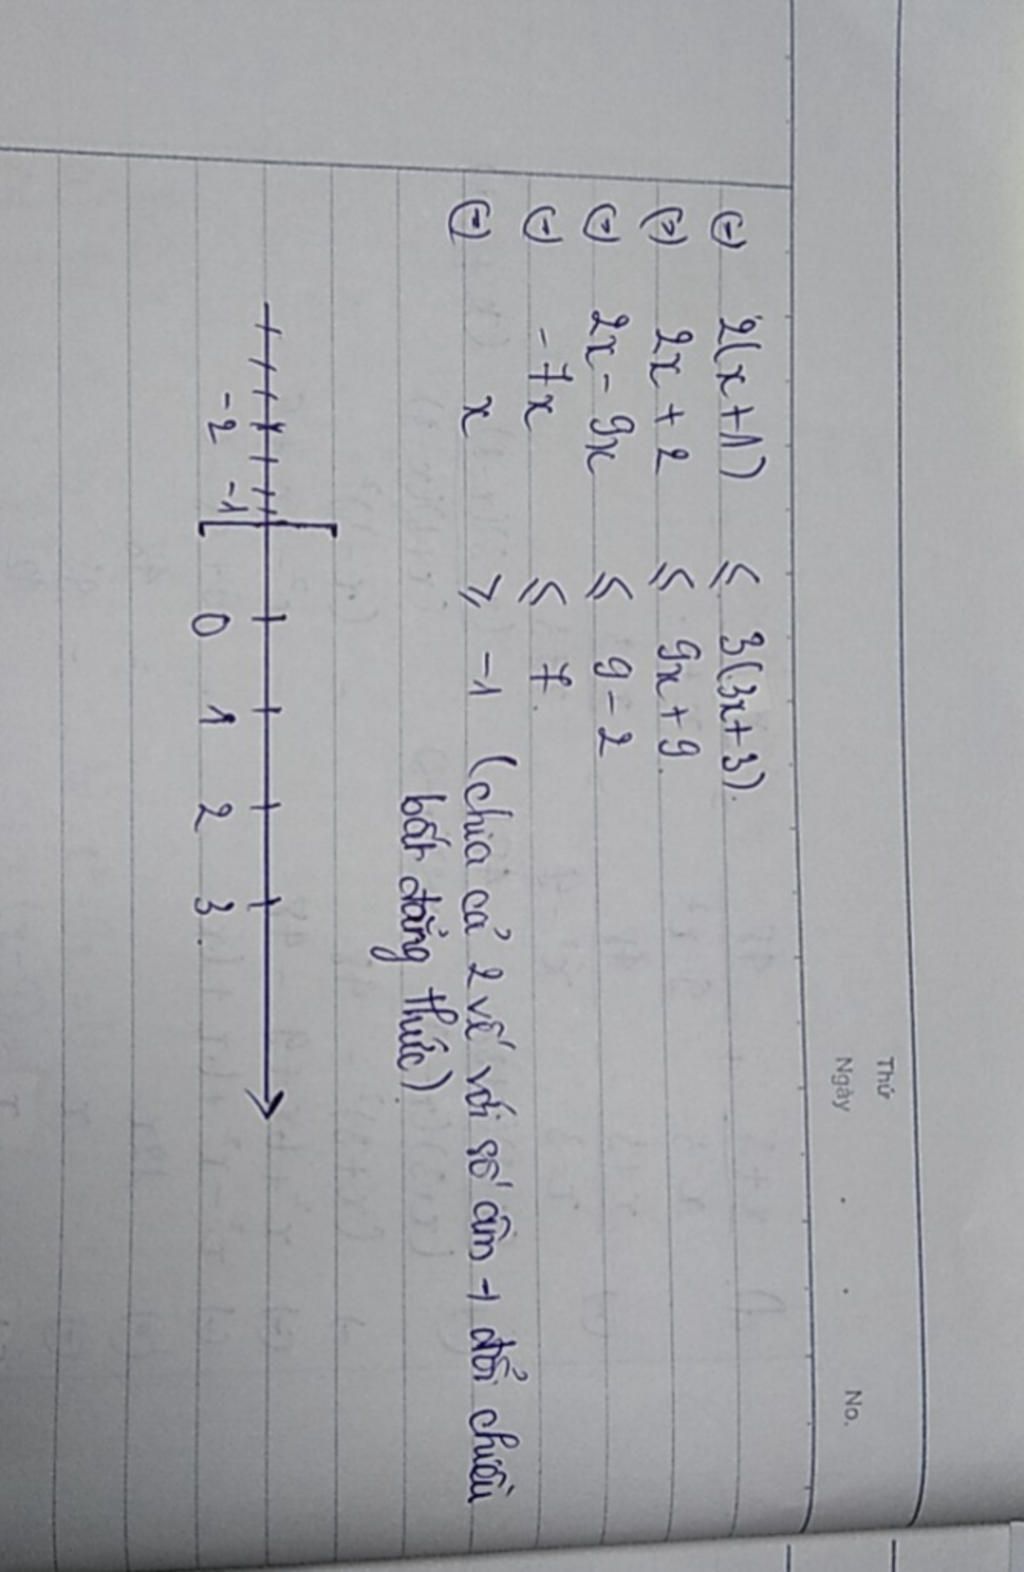 Thứ
Ngày . . No.
(=) 2(x+1) ≤ 3(3x+3).
(=) 2x+2 ≤ 9x+9
(=) 2x-9x ≤ 9-2
(=) -7x ≤ 7.
(=) x ≥ -1 (chia cả 2 vế với số âm → đổi chiều
bất đẳng thức)
-2 -1 0 1 2 3.